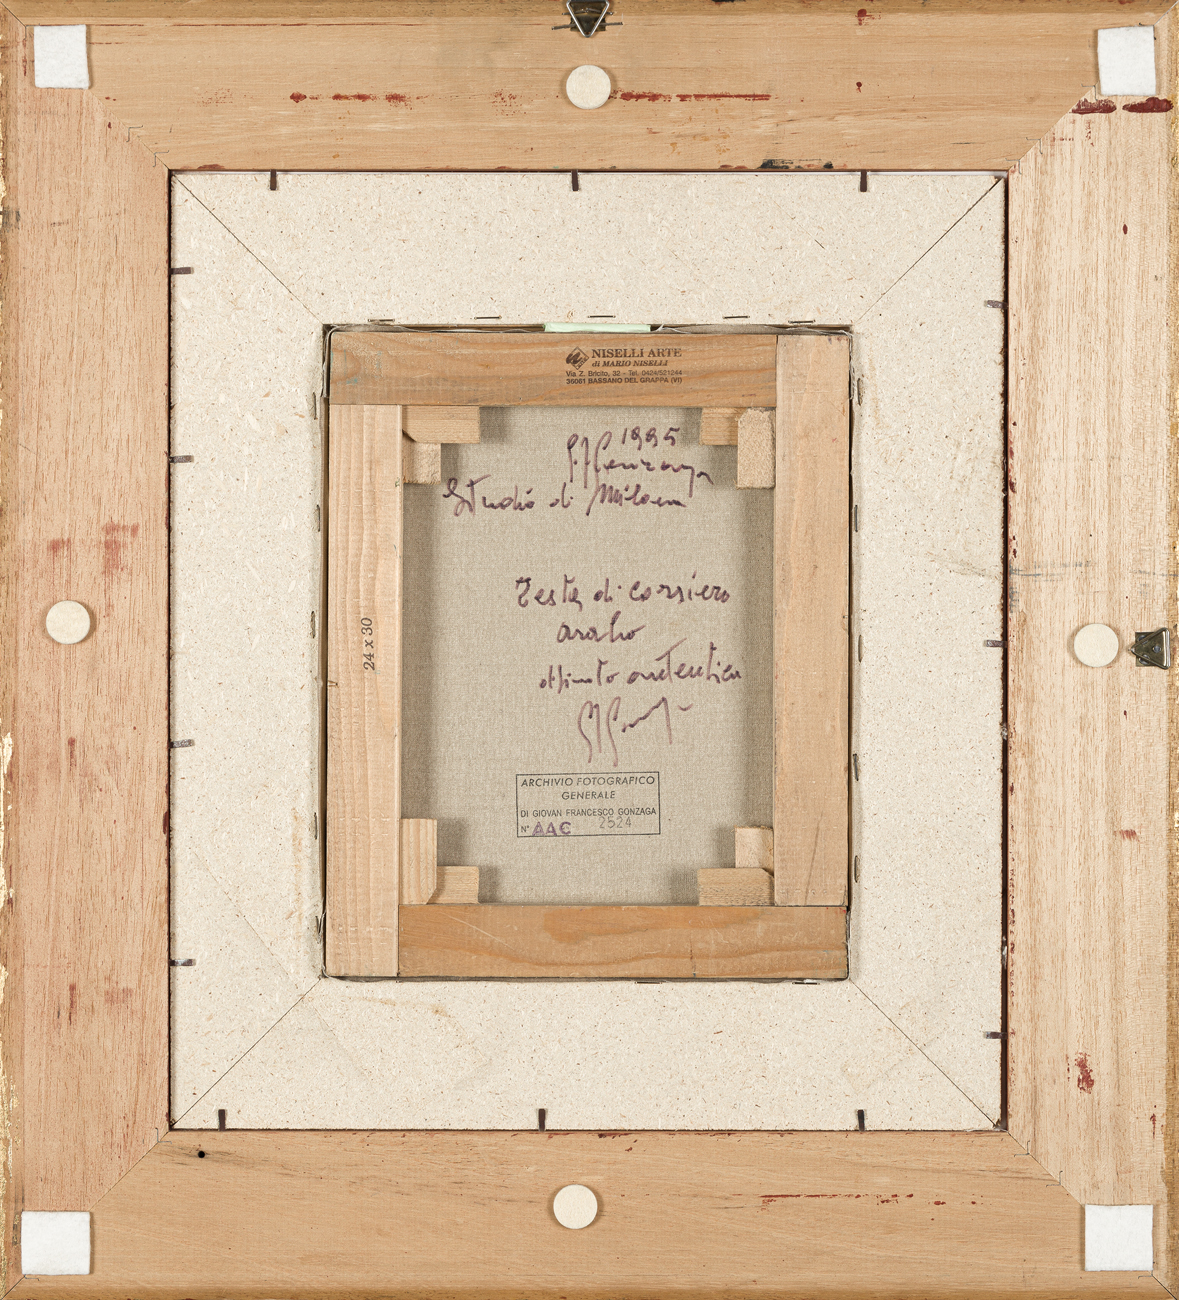 NISELLI ARTE
di MARIO NISELLI
Via Z. Bricito, 32 - Tel. 0424/521244
36061 BASSANO DEL GRAPPA (VI)
1995
GFGonzaga
Studio di Milano
24 x 30
Testa di corsiero
arabo
dipinto autentico
GFGonzaga
ARCHIVIO FOTOGRAFICO
GENERALE
DI GIOVAN FRANCESCO GONZAGA
N° AAC 2524